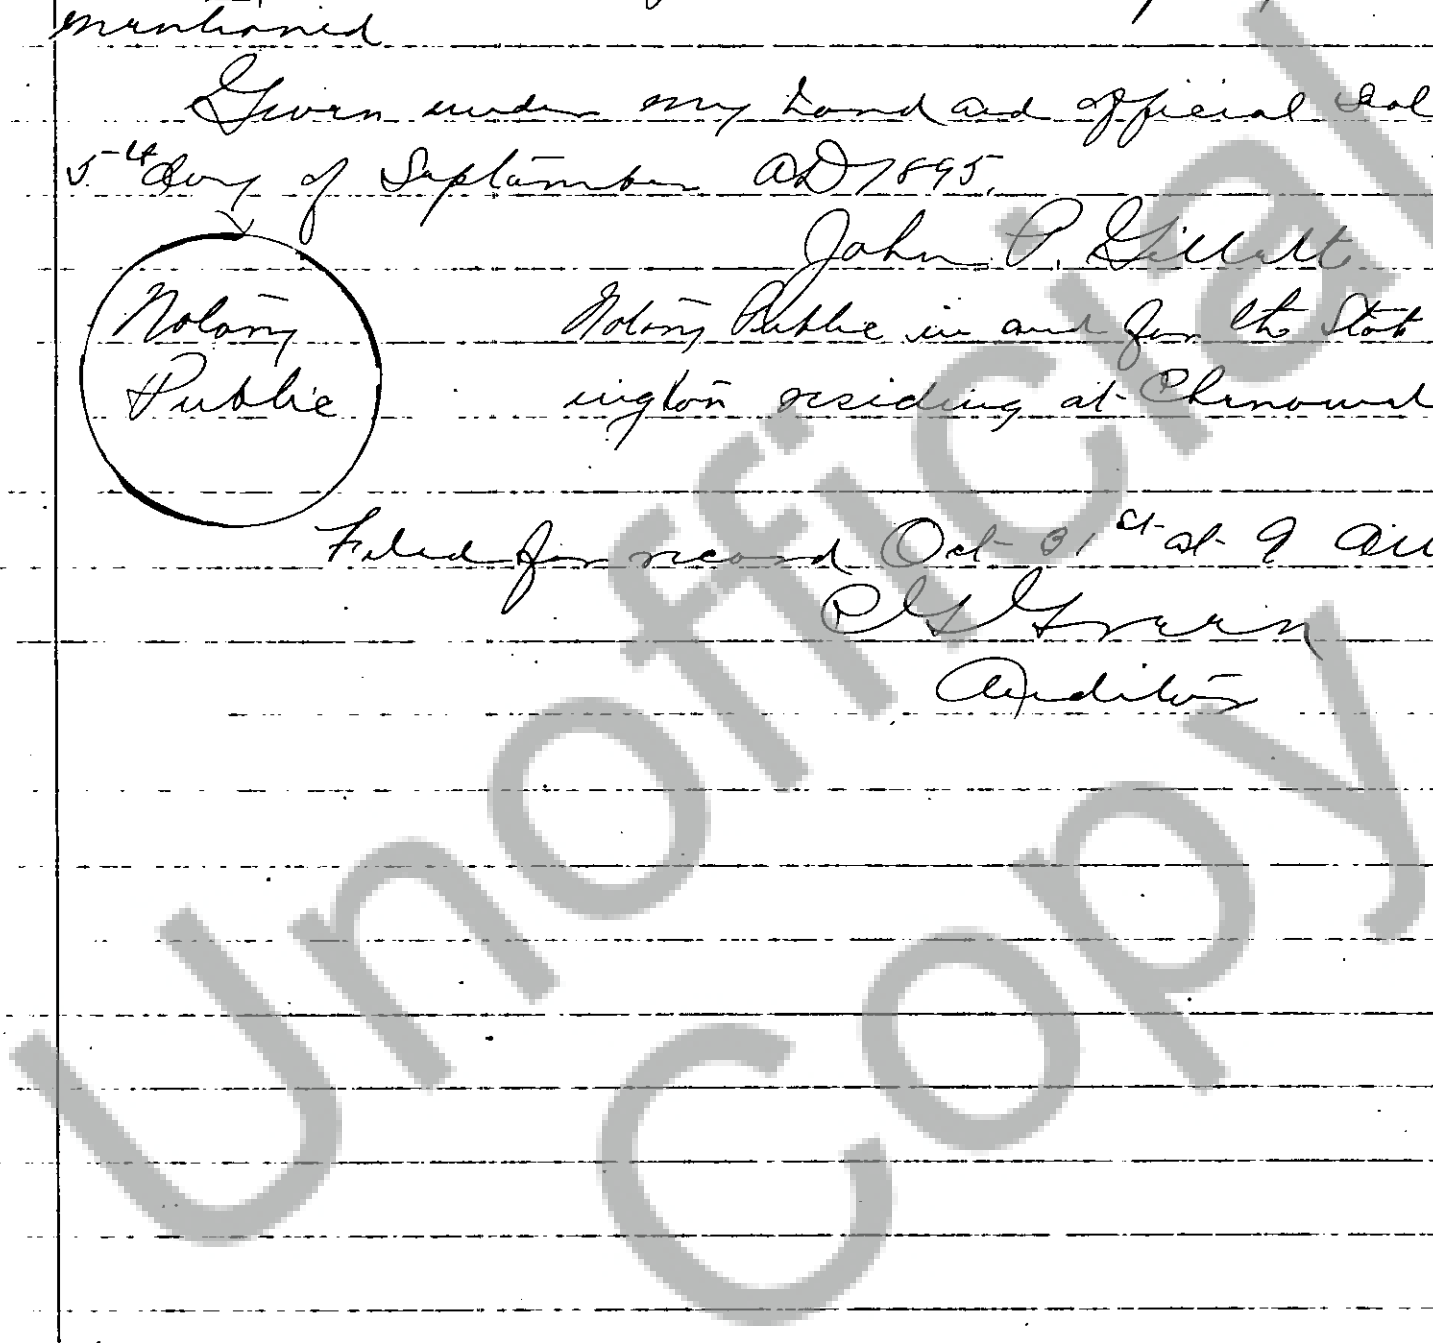 mentioned
Given under my hand and official seal
5th day of September AD 1895.
John P. Gillett
Notary Public
Notary Public in and for the State
ington residing at Chenowith
Filed for record Oct 31st at 9 am
C G Green
Auditor
Unofficial
Copy